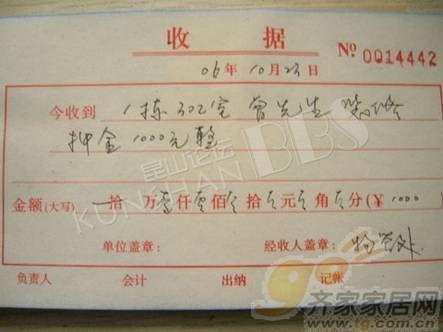 收据
№ 0014442
06年10月23日
今收到 1栋302室 曾先生 装修
押金1000元整
金额(大写) 拾 万壹仟零佰零拾零元零角零分(￥1000)
单位盖章: 经收人盖章: 物管处
负责人 会计 出纳 记账
昆山论坛
KUNSHAN BBS
齐家家居网
www.tg.com.cn